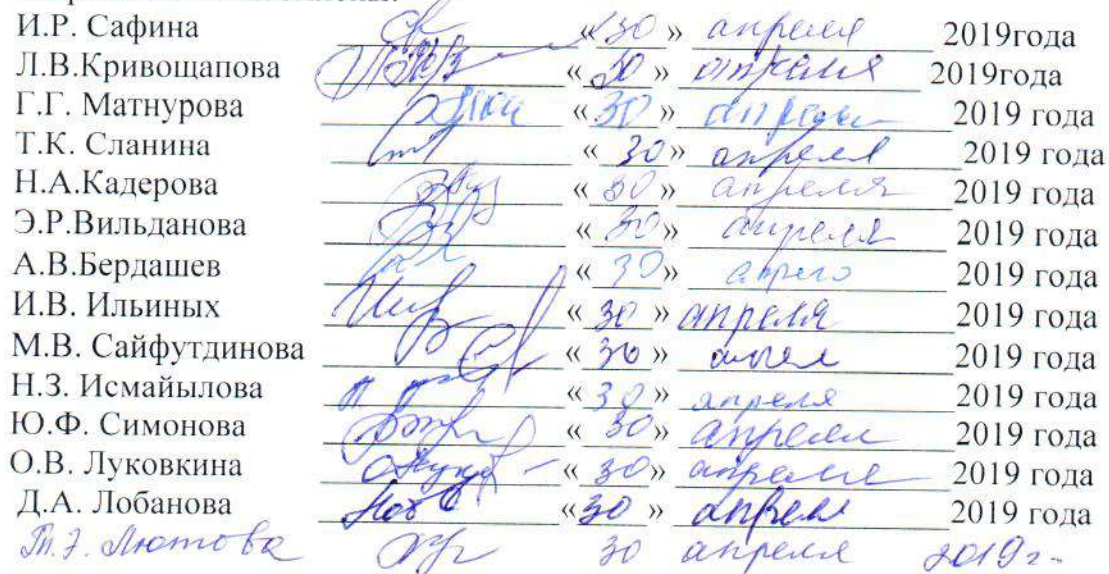 И.Р. Сафина «30» апреля 2019года
Л.В.Кривощапова «30» апреля 2019года
Г.Г. Матнурова «30» апреля 2019 года
Т.К. Сланина «30» апреля 2019 года
Н.А.Кадерова «30» апреля 2019 года
Э.Р.Вильданова «30» апреля 2019 года
А.В.Бердашев «30» 2019 года
И.В. Ильиных «30» апреля 2019 года
М.В. Сайфутдинова «30» 2019 года
Н.З. Исмайылова «30» апреля 2019 года
Ю.Ф. Симонова «30» апреля 2019 года
О.В. Луковкина «30» апреля 2019 года
Д.А. Лобанова «30» апреля 2019 года
30 апреля 2019 г.